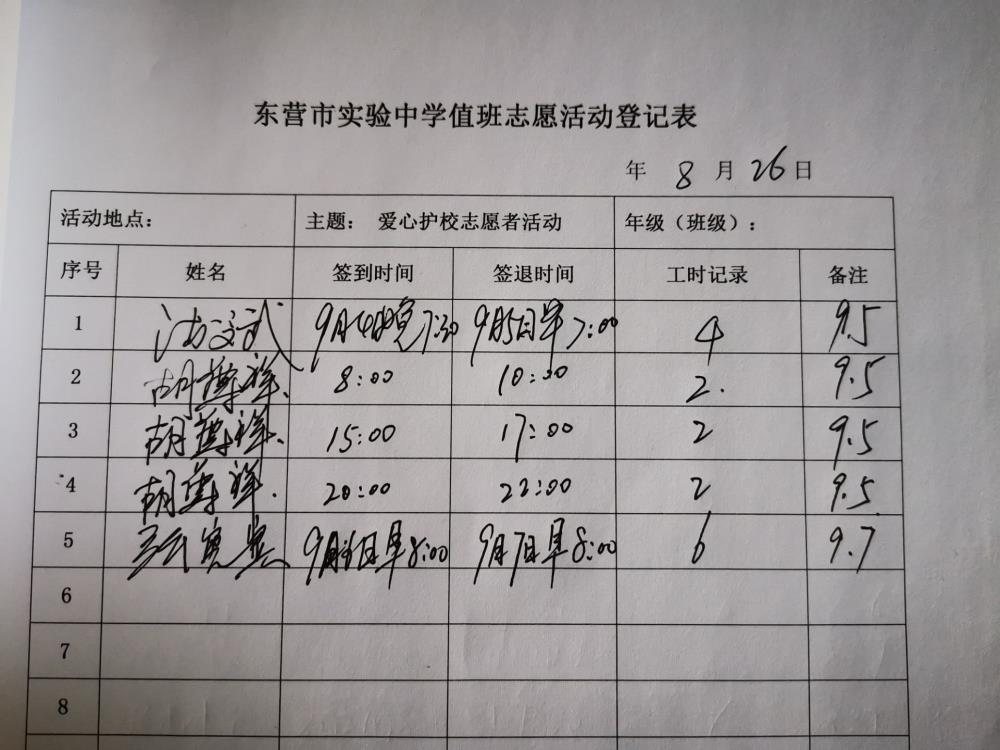 东营市实验中学值班志愿活动登记表
年 8 月 26 日
活动地点： 主题： 爱心护校志愿者活动 年级（班级）：
序号 姓名 签到时间 签退时间 工时记录 备注
1 文武 9月4日晚7:30 9月5日早7:00 4 9.5
2 胡尊祥 8:00 10:00 2. 9.5
3 胡尊祥 15:00 17:00 2 9.5
4 胡尊祥. 20:00 22:00 2 9.5
5 9月 日早8:00 9月7日早8:00 6 9.7
6
7
8